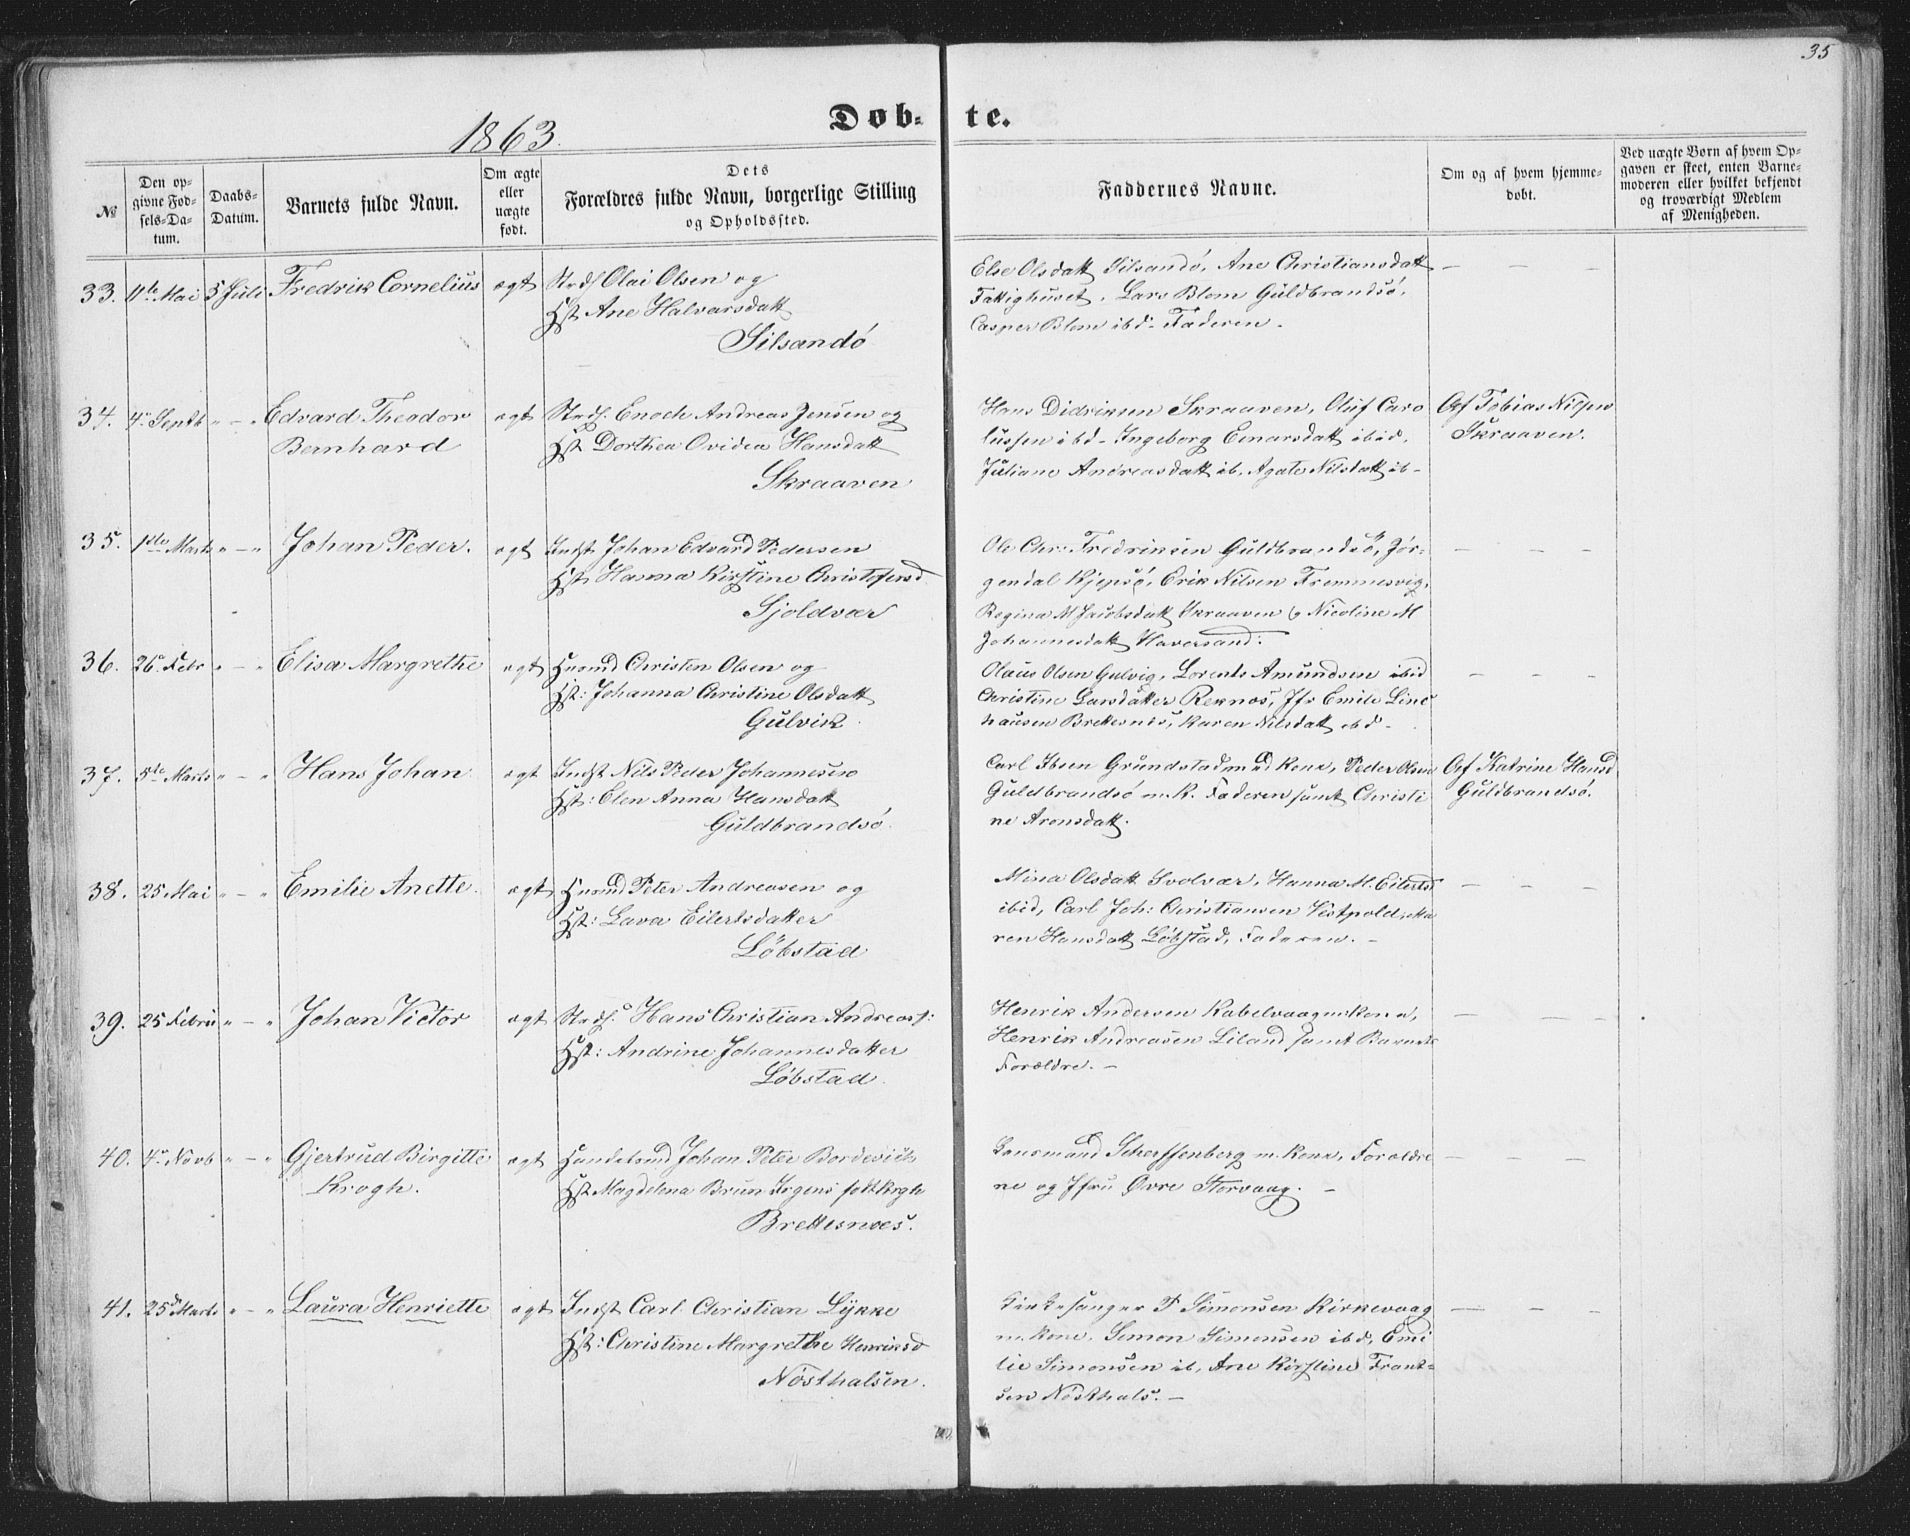 35
1863.
Døb- te.
№
Den op-
givne Fød-
sels-Da-
tum.
Daabs-
Datum.
Barnets fulde Navn.
Om ægte
eller
uægte
født.
Dets
Forældres fulde Navn, borgerlige Stilling
og Opholdssted.
Faddernes Navne.
Om og af hvem hjemme-
døbt.
Ved uægte Børn af hvem Op-
gaven er skeet, enten Barne-
moderen eller hvilket bekjendt
og troværdigt Medlem
af Menigheden.
33. 11te Mai 5 Juli Fredrik Cornelius ægt Strds Olai Olsen og
Hst Ane Halvarsdatt
Silsandø
Else Olsdatt Silsandø, Ane Christiansdatt
Fattighuset, Lars Blom Guldbrandsø,
Casper Blom ibd- Faderen.
— — —
34. 4de Septb " — " Edvard Theodor
Bernhard
ægt Strds. Enoch Andreas Jensen og
Hst Dorthea Ovidea Hansdatt
Skraaven
Hans Didriksen Skraaven, Oluf Caro
lussen ibd- Ingeborg Emarsdatt ibid,
Juliane Andreasdatt ib, Agate Nilsdatt ib-
Af Tobias Nilsen
Skraaven.
35. 1ste Marts " — " Johan Peder. ægt Indst Johan Edvard Pedersen
Hst Hanna Kirstine Christofersd
Sjoldvær
Ole Chr: Fredriksen Guldbrandsø, Jør-
gendal Kjepsø, Erik Nilsen Fremmesvig,
Regina M Jacobsdatt Skraaven & Nicoline M
Johannesdatt Haversand:
— — —
36. 26de Febr " — " Elisa Margrethe ægt Husmd Christen Olsen og
Hst: Johanna Christine Olsdatt
Gulvik
Olaus Olsen Gulvig, Lorents Amundsen ibid
Christine Larsdatter Reknes, Jfr Emile Linc
hausen Brettesnes, Karen Nilsdatt ibd-
— — —
37. 5te Marts " — " Hans Johan ægt Indst Nils Peder Johannesen
Hst: Elen Anna Hansdatt
Guldbrandsø.
Carl Ibsen Grundstad med Kone, Peder Olsen
Guldbrandsø m. K. Faderen samt Christi
ne Aronsdatt.
Af Katrine Hansd
Guldbrandsø.
38. 25 Mai " — " Emilie Anette. ægt Husmd Peter Andreasen og
Hst: Lava Eilertsdatter
Løbstad
Mina Olsdatt Svolvær, Hanna M. Eilertsd
ibid, Carl Joh: Christiansen Vestpold, Ma
ren Hansdatt Løbstad, Faderen. -
— — —
39. 25 Febru " — " Johan Victor ægt Strds: Hans Christian Andreass:
Hst: Andrine Johannesdatter
Løbstad.
Henrik Andersen Kabelvaag m. Kone,
Henrik Andreasen Liland samt Barnets
Forældre. -
— — —
40. 4de Novb " — " Gjertrud Birgitte
Krogh.
ægt Handelsmd Johan Peter Bordevich
Hst Magdelena Brun Irgens født Krogh
Brettesnæs.
Lensmand Scheffenberg m. Kone, Forældre
ne og Jfru Øvre Storvaag. -
— — —
41. 25de Marts " — " Laura Henriette ægt Indst Carl Christian Lykke
Hst: Christine Margrethe Henriksd
Nøsthalsen.
Kirkesanger P Simonsen Kirkevaag
m. Kone, Simon Simonsen ibd, Emi
lie Simonsen ib, Ane Kirstine Frant-
sen Nøsthals. -
— — —